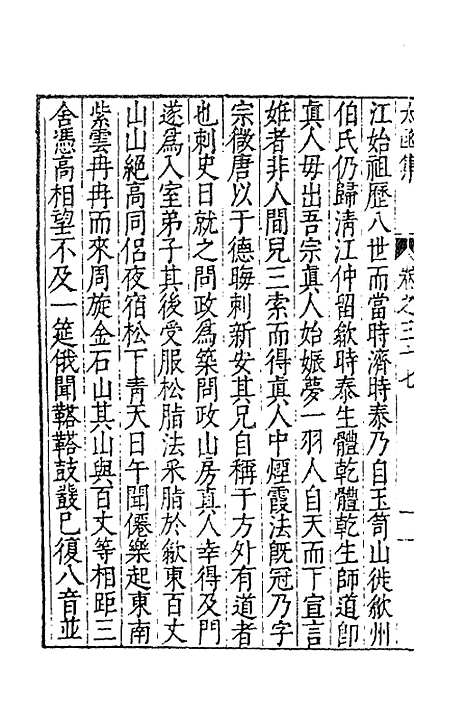 太函集 卷之三十七
江始祖歷八世而當時濟時泰乃自玉笥山徙歙州
伯氏仍歸淸江仲留歙時泰生體乾體乾生師道卽
真人母出吾宗真人始娠夢一羽人自天而下宣言
姙者非人間兒三索而得真人中煙霞法旣冠乃字
宗微唐以于德晦刺新安其兄自稱于方外有道者
也刺史日就之問政爲築問政山房真人幸得及門
遂爲入室弟子其後受服松脂法采脂於歙東百丈
山山絕高同侶夜宿松下靑天日午聞僊樂起東南
紫雲冉冉而來周旋金石山其山與百丈等相距三
舍憑高相望不及一筵俄聞鞳鞳鼓叢已復八音並